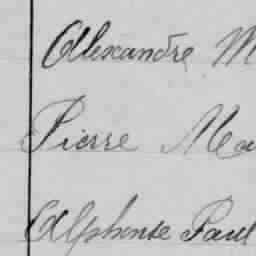 Alexandre M
Pierre Ma
Alphonse Paul